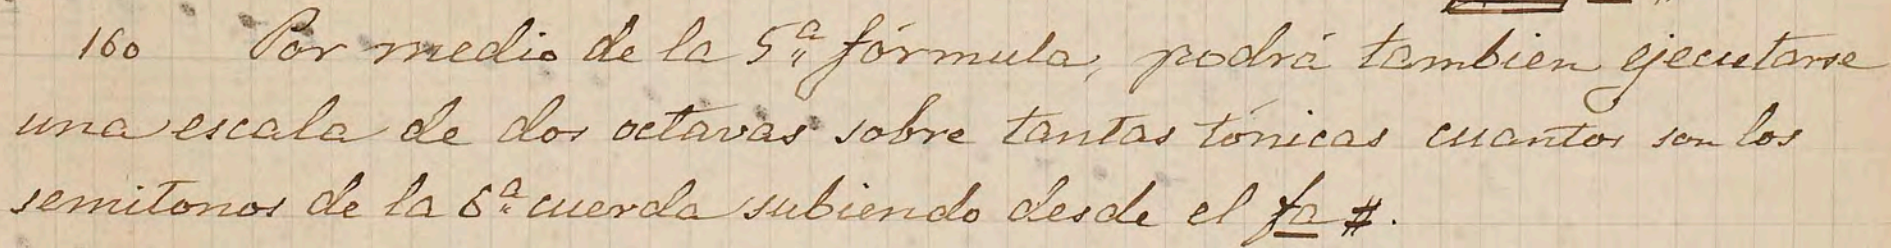 160 Por medio de la 5ª fórmula, podrá tambien ejecutarse
una escala de dos octavas sobre tantas tónicas cuantos son los
semitonos de la 6ª cuerda subiendo desde el fa #.